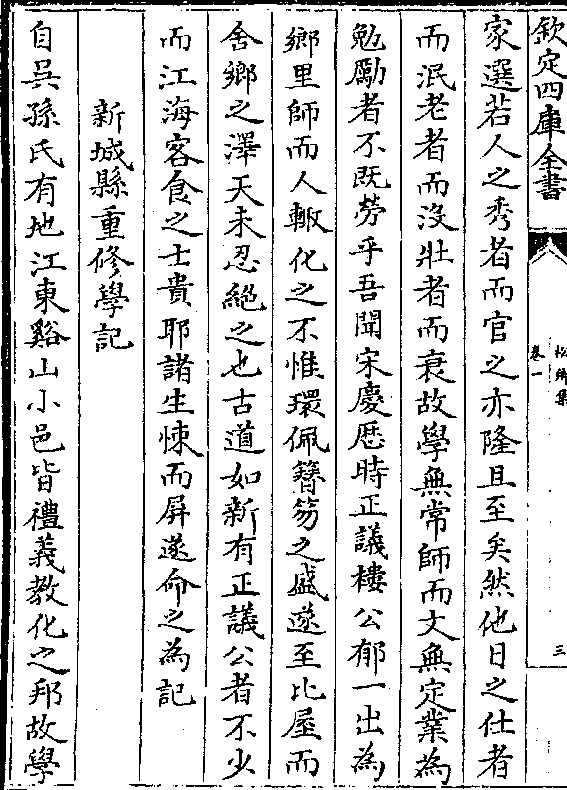 欽定四庫全書
松鄉集
卷一
三
家選若人之秀者而官之亦隆且至矣然他日之仕者
而泯老者而沒壯者而衰故學無常師而文無定業為
勉勵者不既勞乎吾聞宋慶厯時正議樓公郁一出為
鄉里師而人輙化之不惟環佩簪笏之盛遂至比屋而
舍鄉之澤天未忍絕之也古道如新有正議公者不少
而江海客食之士貴耶諸生悚而屏遂命之為記
新城縣重修學記
自吳孫氏有地江東谿山小邑皆禮義教化之邦故學